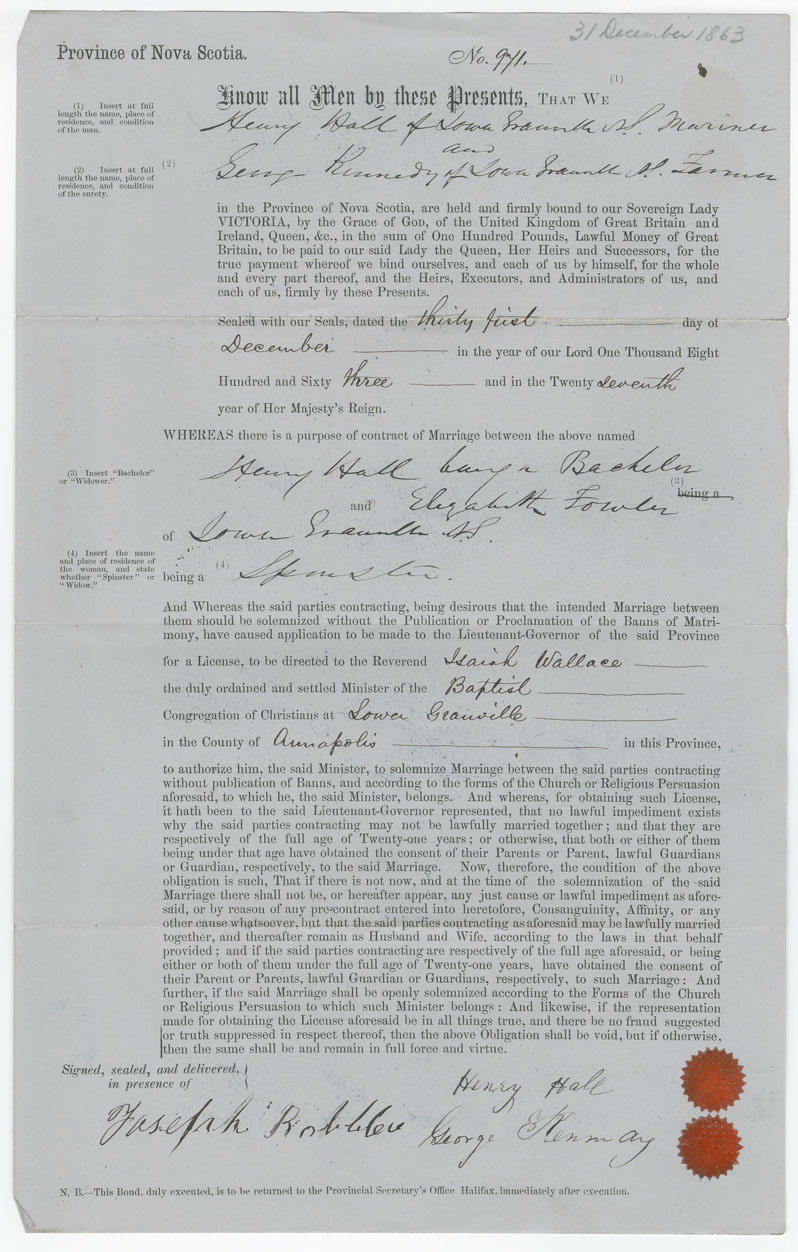 31 December 1863
Province of Nova Scotia.
No. 971.
(1)
Know all Men by these Presents, THAT WE
(1) Insert at full
length the name, place of
residence, and condition
of the man.
Henry Hall of Lower Granville N.S. Mariner
and
(2) Insert at full
length the name, place of
residence, and condition
of the surety.
(2)
George Kennedy of Lower Granville N.S. Farmer
in the Province of Nova Scotia, are held and firmly bound to our Sovereign Lady
VICTORIA, by the Grace of GOD, of the United Kingdom of Great Britain and
Ireland, Queen, &c., in the sum of One Hundred Pounds, Lawful Money of Great
Britain, to be paid to our said Lady the Queen, Her Heirs and Successors, for the
true payment whereof we bind ourselves, and each of us by himself, for the whole
and every part thereof, and the Heirs, Executors, and Administrators of us, and
each of us, firmly by these Presents.
Sealed with our Seals, dated the thirty first day of
December in the year of our Lord One Thousand Eight
Hundred and Sixty three and in the Twenty seventh
year of Her Majesty's Reign.
WHEREAS there is a purpose of contract of Marriage between the above named
(3) Insert "Bachelor"
or "Widower."
Henry Hall being a Bachelor
(3)
being a
and Elizabeth Fowler
of Lower Granville N.S.
(4) Insert the name
and place of residence of
the woman, and state
whether "Spinster" or
"Widow."
(4)
being a Spinster.
And Whereas the said parties contracting, being desirous that the intended Marriage between
them should be solemnized without the Publication or Proclamation of the Banns of Matri-
mony, have caused application to be made to the Lieutenant-Governor of the said Province
for a License, to be directed to the Reverend Isaiah Wallace
the duly ordained and settled Minister of the Baptist
Congregation of Christians at Lower Granville
in the County of Annapolis in this Province,
to authorize him, the said Minister, to solemnize Marriage between the said parties contracting
without publication of Banns, and according to the forms of the Church or Religious Persuasion
aforesaid, to which he, the said Minister, belongs. And whereas, for obtaining such License,
it hath been to the said Lieutenant-Governor represented, that no lawful impediment exists
why the said parties contracting may not be lawfully married together; and that they are
respectively of the full age of Twenty-one years; or otherwise, that both or either of them
being under that age have obtained the consent of their Parents or Parent, lawful Guardians
or Guardian, respectively, to the said Marriage. Now, therefore, the condition of the above
obligation is such, That if there is not now, and at the time of the solemnization of the said
Marriage there shall not be, or hereafter appear, any just cause or lawful impediment as afore-
said, or by reason of any pre-contract entered into heretofore, Consanguinity, Affinity, or any
other cause whatsoever, but that the said parties contracting as aforesaid may be lawfully married
together, and thereafter remain as Husband and Wife, according to the laws in that behalf
provided; and if the said parties contracting are respectively of the full age aforesaid, or being
either or both of them under the full age of Twenty-one years, have obtained the consent of
their Parent or Parents, lawful Guardian or Guardians, respectively, to such Marriage: And
further, if the said Marriage shall be openly solemnized according to the Forms of the Church
or Religious Persuasion to which such Minister belongs: And likewise, if the representation
made for obtaining the License aforesaid be in all things true, and there be no fraud suggested
or truth suppressed in respect thereof, then the above Obligation shall be void, but if otherwise,
then the same shall be and remain in full force and virtue.
Signed, sealed, and delivered,
in presence of
Henry Hall
Joseph
George
N. B.—This Bond, duly executed, is to be returned to the Provincial Secretary's Office Halifax, immediately after execution.